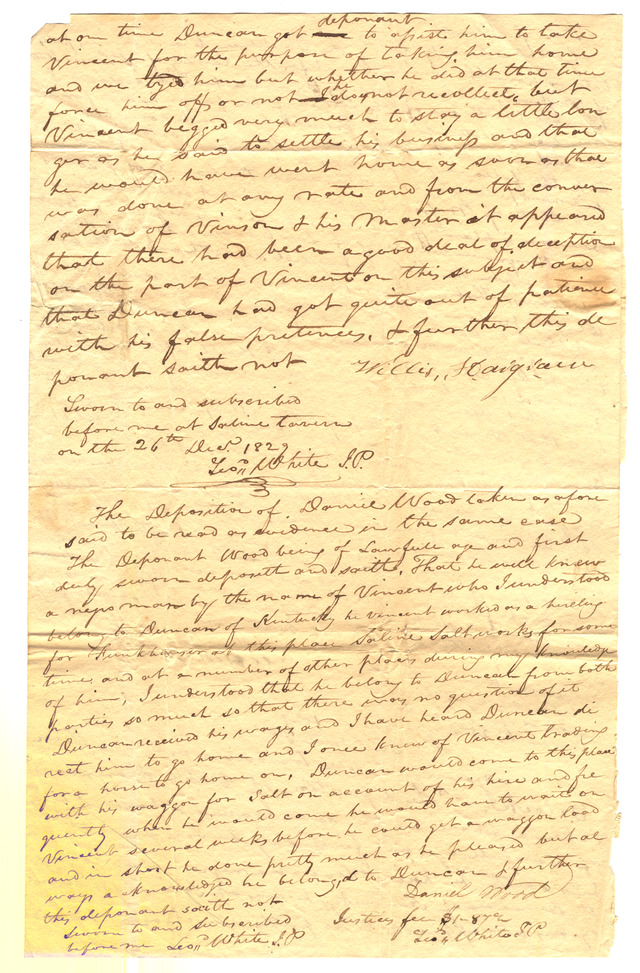 deponant
at on time Duncan got to assist him to take
Vincent for the purpose of taking him home
and we tyed him but whether he did at that time
force him off or not he does not recollect, but
Vincent begged very much to stay a little lon
ger as he said to settle his business and that
he would have went home as soon as that
was done at any rate and from the conver
sation of Vinson & his Master it appeared
that there had been a good deal of deception
on the part of Vincent on this subject and
that Duncan had got quite out of patience
with his false pretences, & further this de
ponant saith not Willis Hargrave
Sworn to and subscribed
before me at Saline tavern
on the 26th Decr. 1829
Leon White J.P.
The Deposition of Daniel Wood taken as afore
said to be read as evidence in the same case
The Deponant Wood being of Lawfull age and first
duly sworn deposeth and saith. That he well knew
a negro man by the name of Vincent who I understood
belong to Duncan of Kentucky he Vincent worked as a hireling
for Funkhouser at this place Saline Salt works for some
time and at a number of other places during my knowledge
of him, I understood that he belong to Duncan from both
parties so much so that there was no question of it
Duncan received his wages and I have heard Duncan di
rect him to go home and I once knew of Vincent trading
for a horse to go home on, Duncan would come to this place
with his waggon for Salt on account of his hire and fre
quently when he would come he would have to wait on
Vincent several weeks before he could get a waggon load
and in short he done pretty much as he pleased but al
ways acknowledged he belongd to Duncan & further
this deponant saith not Daniel Wood
Sworn to and subscribed Justices fee $1-87½
before me Leon White J.P Leon White J P